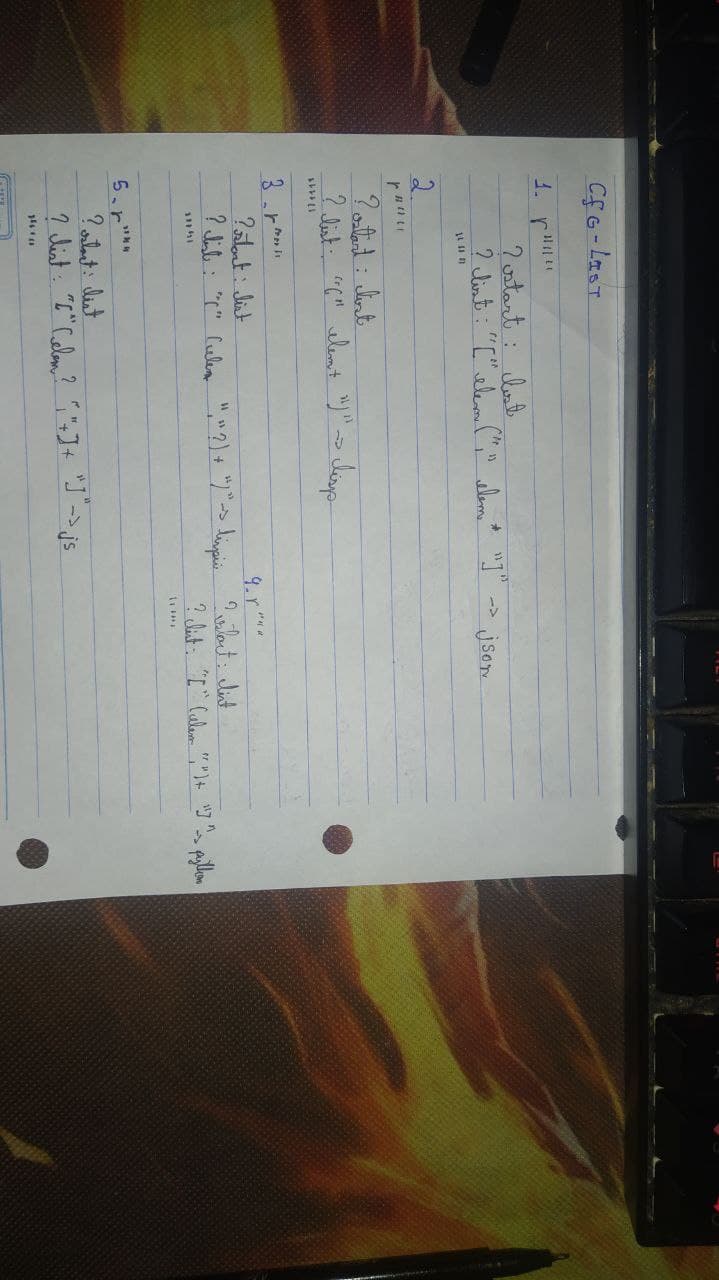 CfG-LIST
1. r"""
?start : list
?list : "[" elem ("," elem * "]" -> json
"""
2.
r"""
?start : list
?list : "(" elem + ")" -> lisp
"""
3-r"""
?start : list
?list : "(" (elem ","?)+ ")" -> lispic
"""
4-r"""
?start : list
?list : "[" (elem ",")+ "]" -> python
"""
5-r"""
?start : list
?list : "[" (elem? ","+]+ "]" -> js
"""